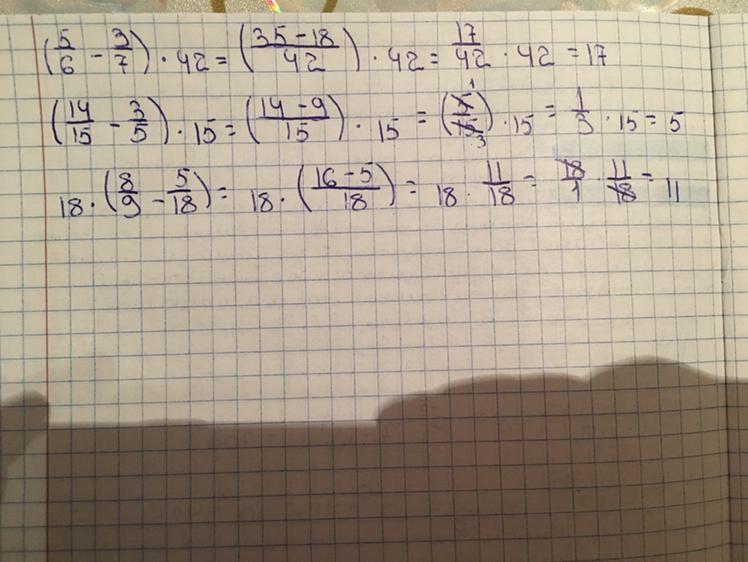 (5/6 - 3/7) · 42 = (35-18/42) · 42 = 17/42 · 42 = 17
(14/15 - 3/5) · 15 = (14-9/15) · 15 = (5/15) 1 3 · 15 = 1/3 · 15 = 5
18 · (8/9 - 5/18) = 18 · (16-5/18) = 18 · 11/18 = 18/1 · 11/18 = 11